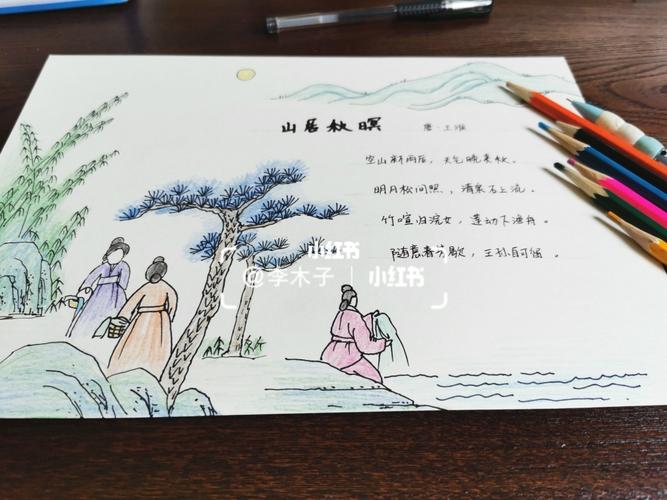 山居秋暝
唐·王维
空山新雨后，天气晚来秋。
明月松间照，清泉石上流。
竹喧归浣女，莲动下渔舟。
随意春芳歇，王孙自可留。
小红书
@李木子 | 小红书